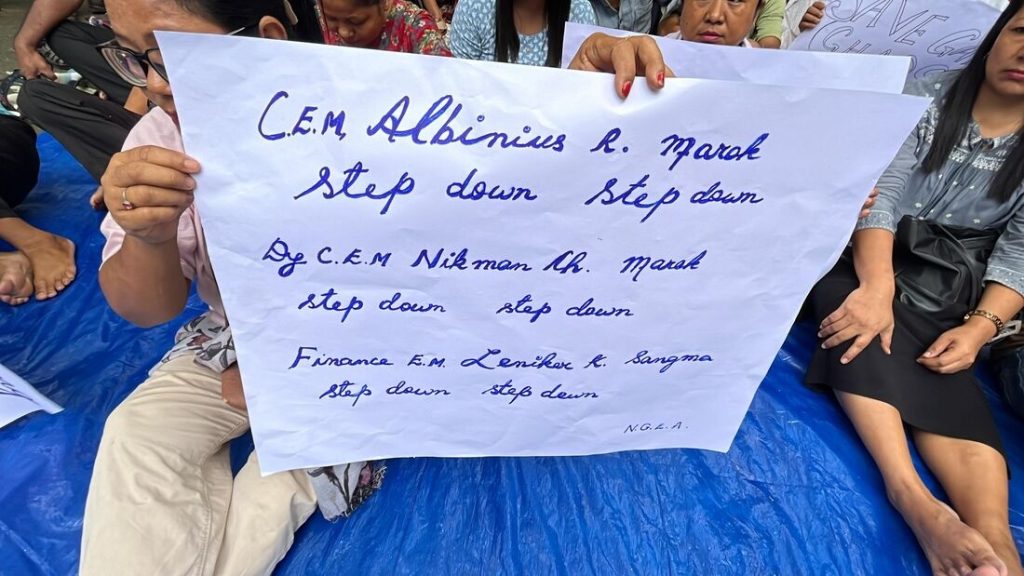 C.E.M. Albinius R. Marak
Step down Step down
Dy C.E.M Nikman Ch. Marak
Step down step down
Finance E.M. Leniker K. Sangma
Step down step down
N.G.E.A.
SAVE